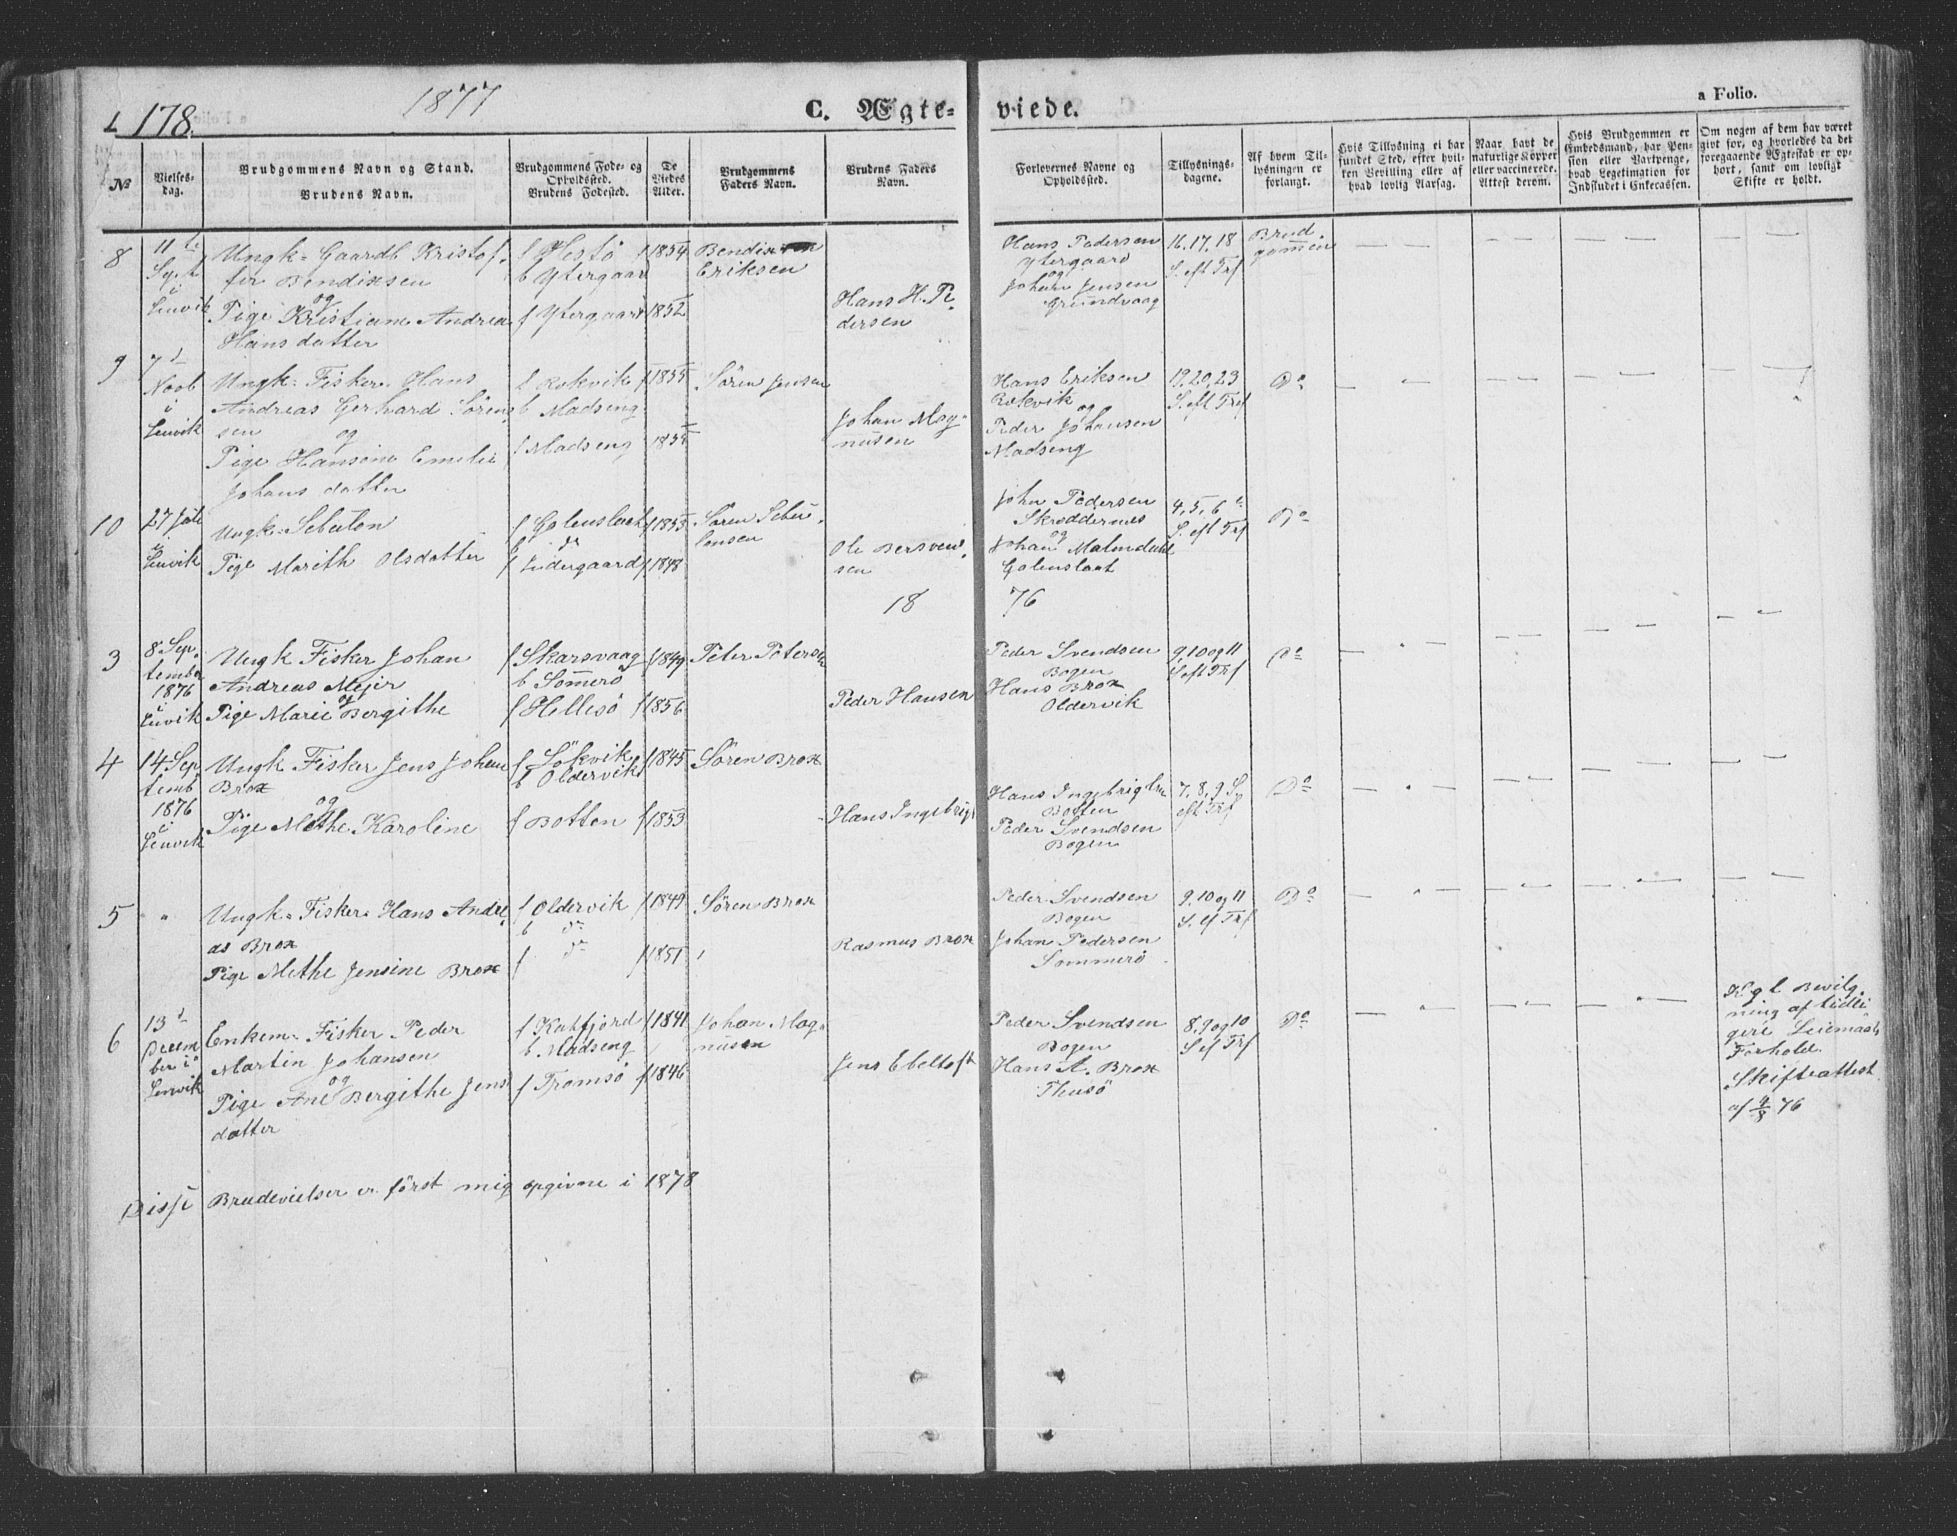 178.
1877
C. Ægte- viede.
a Folio.
No
Vielses-
dag.
Brudgommens Navn og Stand.
Brudens Navn.
Brudgommens Føde- og
Opholdssted.
Brudens Fødested.
De
Viedes
Alder.
Brudgommens
Faders Navn.
Brudens Faders
Navn.
Forlovernes Navne og
Opholdssted.
Tillysnings-
dagene.
Af hvem Til-
lysningen er
forlangt.
Hvis Tillysning ei har
fundet Sted, efter hvil-
ken Bevilling eller af
hvad lovlig Aarsag.
Naar havt de
naturlige Kopper
eller vaccinerede.
Attest derom.
Hvis Brudgommen er
Embedsmand, har Pen-
sion eller Vartpenge,
hvad Legetimation for
Indskudet i Enkecassen.
Om nogen af dem har været
givt for, og hvorledes da det
foregaaende Ægteskab er op-
hørt, samt om lovligt
Skifte er holdt.
8
11te
Sept
i
Lenvik
Ungk: Gaardb Kristof-
fer Bendixsen
og
Pige Kristiane Andrea
Hansdatter
f Hestö
b Ytergaar
f Ytergaard
f 1854
1852
Bendix
Eriksen
Hans H. Pe
dersen
Hans Pedersen
Ytergaard
og
Johan Jensen
Grundvaag
16. 17. 18
S. eft Trf
Brud-
gommen
9
7d
Novb
i
Lenvik
Ungk: Fisker Hans
Andreas Gerhard Sören-
sen og
Pige Hansine Emelie
Johans datter
f Rokvik
b Madseng
f Madseng
f 1855
Sören Jensen
Johan Mag-
nusen
Hans Eriksen
Rokvik
og
Peder Johansen
Madseng
19. 20. 23
S. eft Tref
Do
10
27 Juli
i
Lenvik
Ungk: Sebulon
Pige Marith Olsdatter
f Golenslaat
b do
f Indergaard
f 1853
f 1848
Sören Sebu-
lonsen
Ole Bersven-
sen
John Pedersen
Skrøddernes
og
Johan Malmdahl
Golenslaat
4, 5, 6te
S. eft Trf
Do
18 76
3
8 Sep-
tember
1876
i
Lenvik
Ungk Fisker Johan
Andreas Mejer
og
Pige Marie Bergithe
f Skarsvaag
b Sommerö
f Hellesö
f 1849
f 1856
Peter Petersen
Peder Hansen
Peder Svendsen
Bogen
Hans Brox
Oldervik
9, 10 og 11
S eft Trf
Do
4
14 Sep
temb
1876
i
Lenvik
Ungk Fisker Jens Johan
Brox
og
Pige Methe Karoline
f Sökvik
b Oldervik
f Botten
f 1845
f 1853
Sören Brox
Hans Ingebrigt
Hans Ingebrigtsen
Botten
Peder Svendsen
Bogen
7. 8, 9 S
eft Trf
Do
5
"
Ungk. Fisker Hans Andre-
as Brox
Pige Methe Jensine Brox
f Oldervik
b do
f do
f 1849
f 1851
Sören Brox
Rasmus Brox
Peder Svendsen
Bogen
Johan Pedersen
Sommerö
9. 10 og 11
S. ef Trf
Do
6
13d
Decem
ber i
Lenvik
Enkem. Fisker Peder
Martin Johansen
og
Pige Ane Bergithe Jens
datter
f Katfjord
b Madseng
f Tromsö
f 1841
f 1846
Johan Mag-
nusen
Jens Ebeltoft
Peder Svendsen
Bogen
Hans A. Brox
Thusö
8, 9 og 10
S ef Trf
Do
Kgl Bevilg-
ning af tidli
gere Leiemaals
Forhold.
Skifteattest
af 4/8 76
Disse Brudevielser er först mig opgivne i 1878